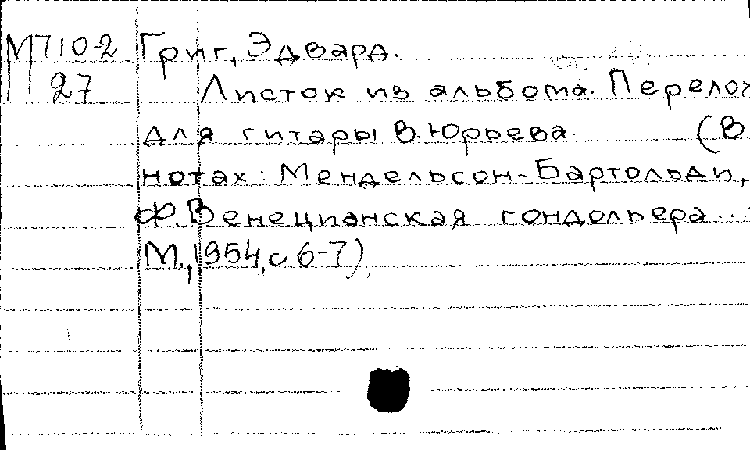 М710-2 Григ, Эдвард.
27 Листок из альбома. Перелож
для гитары В. Юрьева (В
нотах: Мендельсон-Бартольди,
Ф. Венецианская гондольера...
М., 1954, с. 6-7).